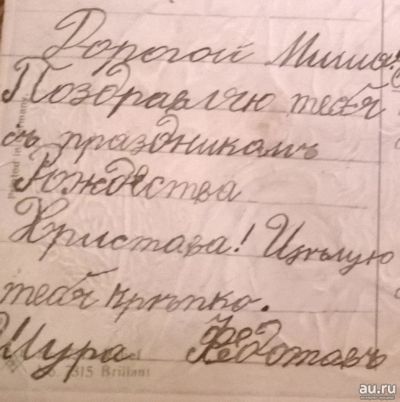 Дорогой Миша!
Поздравляю тебя
съ праздникамъ
Рождества
Христава! Цѣлую
тебя крѣпко.
Шура Федотавъ
Printed in Germany
No. 7315 Brillant
au.ru